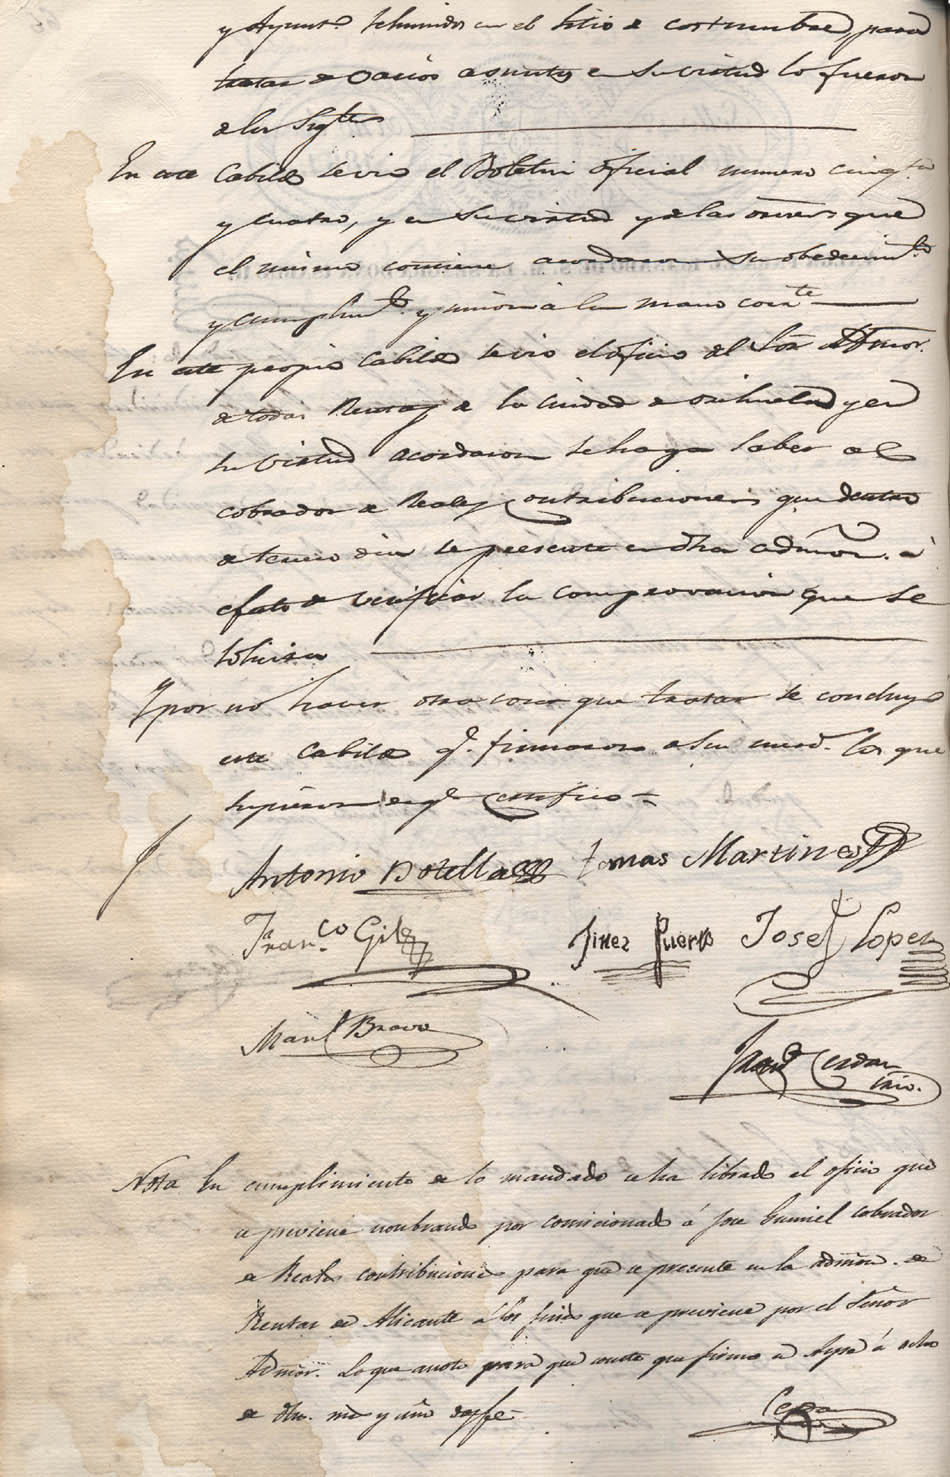 y Ayunt.º rehunidos en el sitio de costumbre, para
tratar de varios asuntos en su virtud lo fueron
de los Sigtes
En este Cabildo se vio el Boletin oficial numero cinqta
y cuatro, y en su virtud y de las ordenes que
el mismo contiene acordaron su obedecimto
y cumplimto. y union a la mano corrte
En este propio Cabildo se vio el oficio del Sor Admor.
de todas Rentas de la Ciudad de orihuela y en
su virtud acordaron se haga saber al
cobrador de Reales contribuciones, que dentro
de tercero dia se presente en dha admon. á
efecto de verificar la comprovacion que se
solicita
Y por no haver otra cosa que tratar se concluyó
este Cabildo q. firmaron a su usansa los que
supieron de q certifico
Antonio Botella Tomas Martines
Franco Gil Jines Puerto Josef Lopez
Manl Bravo
Cerdan
srio.
Nota En cumplimiento de lo mandado se ha librado el oficio que
se previene nombrando por comicionado á Jose Gumiel Cobrador
de Reales contribuciones para que se precente en la admon. de
Rentas de Alicante á los fines que se previene por el Señor
Admor. Lo que anoto para que conste que firmo en Aspe á ocho
de dho. mes y año doy fe